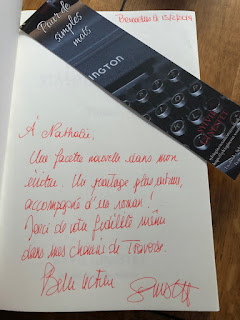 Pour de
simples
mots
INGTON
À Nathalie.
Une facette nouvelle dans mon
écriture. Un partage plus intime,
accompagné d'un roman !
Merci de votre fidélité même
dans mes chemins de Traverse.
Belle lecture